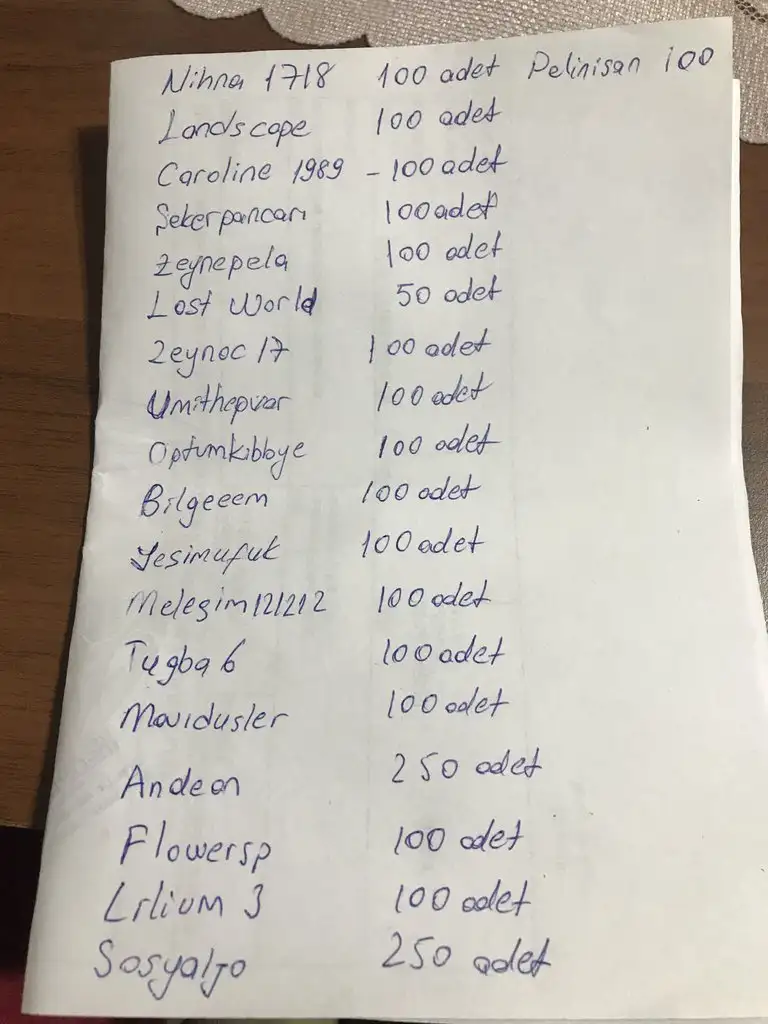 Nihna 1718 100 adet Pelinisan 100
Landscape 100 adet
Caroline 1989 - 100 adet
Sekerpancarı 100 adet
Zeynepela 100 adet
Lost World 50 adet
Zeynoc 17 100 adet
Umithepvar 100 adet
Optumkibbye 100 adet
Bilgeeem 100 adet
Yesimufuk 100 adet
Melegim121212 100 adet
Tugba 6 100 adet
Mavidusler 100 adet
Andean 250 adet
Flowersp 100 adet
Lilium 3 100 adet
250 adet